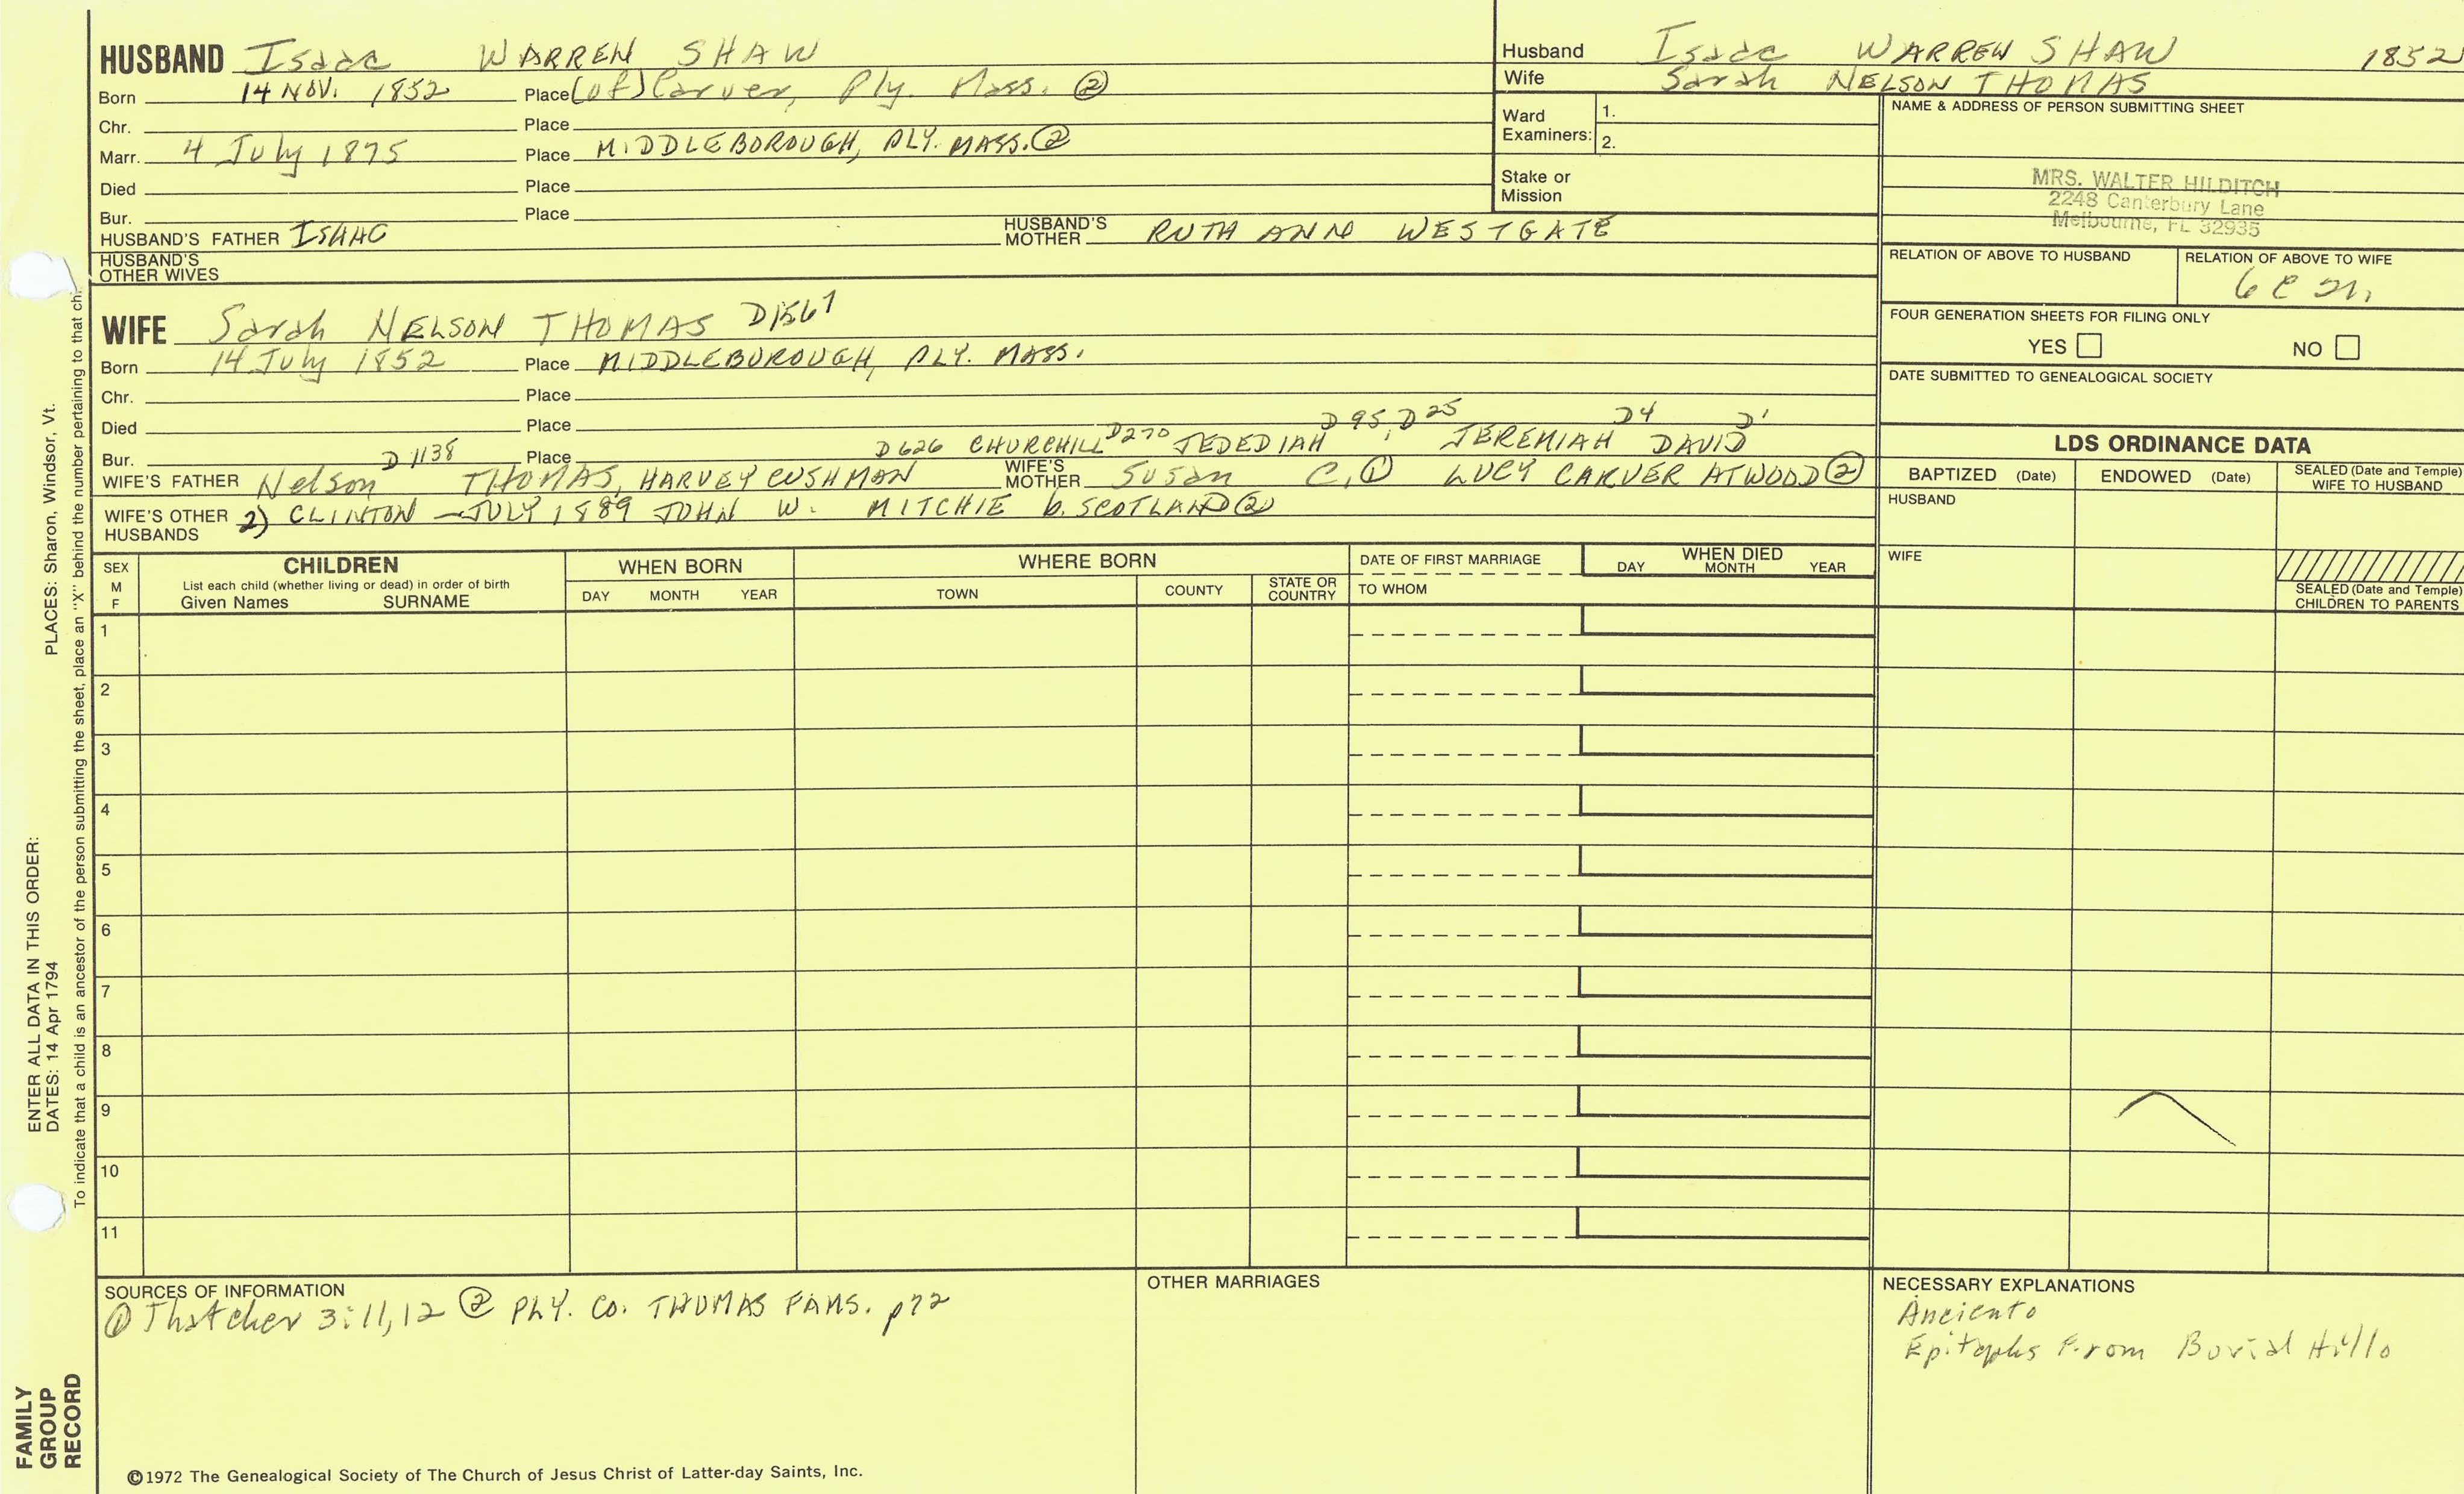 HUSBAND Isaac WARREN SHAW
Born 14 NOV. 1852 Place (of) Carver, Ply. Mass. ②
Chr. Place
Marr. 4 July 1875 Place MIDDLEBOROUGH, PLY. MASS. ②
Died Place
Bur. Place
HUSBAND'S FATHER ISAAC HUSBAND'S MOTHER RUTH ANN WESTGATE
HUSBAND'S OTHER WIVES
Husband Isaac WARREN SHAW 1852
Wife Sarah NELSON THOMAS
Ward Examiners: 1.
2.
Stake or Mission
NAME & ADDRESS OF PERSON SUBMITTING SHEET
MRS. WALTER HILDITCH
2248 Canterbury Lane
Melbourne, FL 32935
RELATION OF ABOVE TO HUSBAND RELATION OF ABOVE TO WIFE
6
FOUR GENERATION SHEETS FOR FILING ONLY
YES NO
DATE SUBMITTED TO GENEALOGICAL SOCIETY
WIFE Sarah NELSON THOMAS D1567
Born 14 July 1852 Place MIDDLEBOROUGH, PLY. MASS.
Chr. Place
Died Place
D95, D25 D4 D1
Bur. D1138 Place D626 CHURCHILL D270 JEDEDIAH JEREMIAH DAVID
WIFE'S FATHER Nelson THOMAS, HARVEY CUSHMAN WIFE'S MOTHER Susan C. ① LUCY CARVER ATWOOD ②
WIFE'S OTHER HUSBANDS 2) CLINTON - JULY 1889 JOHN W. MITCHIE b. SCOTLAND ②
LDS ORDINANCE DATA
BAPTIZED (Date) ENDOWED (Date) SEALED (Date and Temple) WIFE TO HUSBAND
HUSBAND
WIFE
SEALED (Date and Temple) CHILDREN TO PARENTS
SEX M F
CHILDREN
List each child (whether living or dead) in order of birth
Given Names SURNAME
WHEN BORN
DAY MONTH YEAR
WHERE BORN
TOWN COUNTY STATE OR COUNTRY
DATE OF FIRST MARRIAGE
TO WHOM
WHEN DIED
DAY MONTH YEAR
1
2
3
4
5
6
7
8
9
10
11
SOURCES OF INFORMATION
① Thatcher 3:11,12 ② PLY. CO. THOMAS FAMS. p72
OTHER MARRIAGES
NECESSARY EXPLANATIONS
Anciento
Epitaphs From Burial Hillo
©1972 The Genealogical Society of The Church of Jesus Christ of Latter-day Saints, Inc.
FAMILY GROUP RECORD
ENTER ALL DATA IN THIS ORDER:
DATES: 14 Apr 1794
PLACES: Sharon, Windsor, Vt.
To indicate that a child is an ancestor of the person submitting the sheet, place an "X" behind the number pertaining to that ch